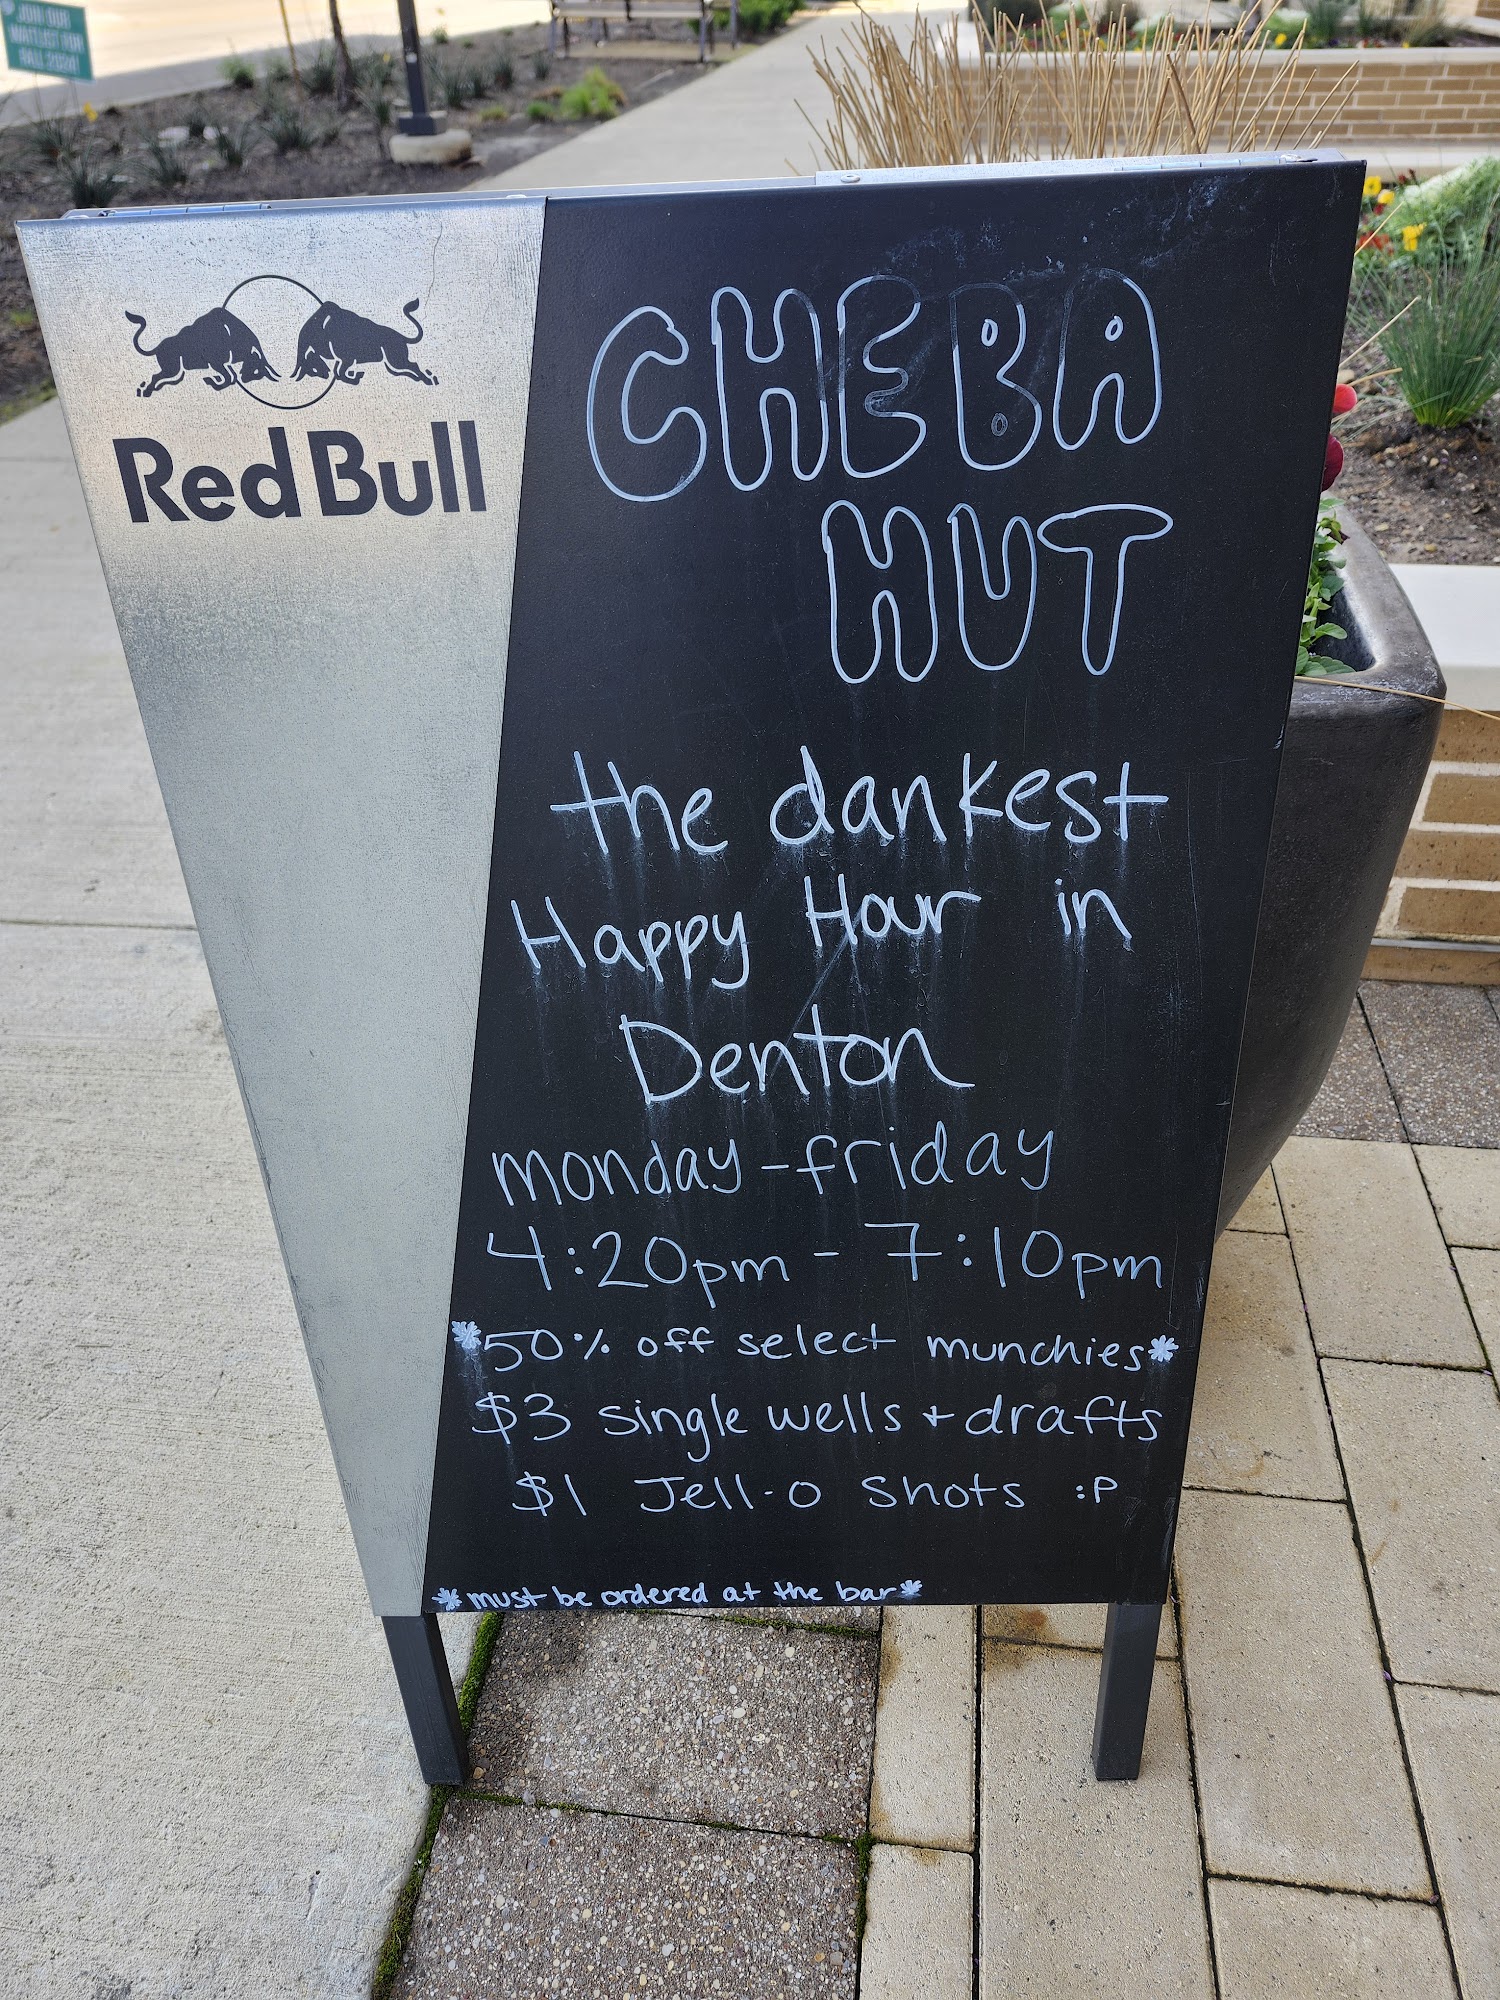 JOIN OUR
WAITLIST FOR
FALL 2024!
Red Bull
CHEBA
HUT
the dankest
Happy Hour in
Denton
monday-friday
4:20pm - 7:10pm
*50% off select munchies*
$3 single wells + drafts
$1 Jell-o Shots :P
*must be ordered at the bar*